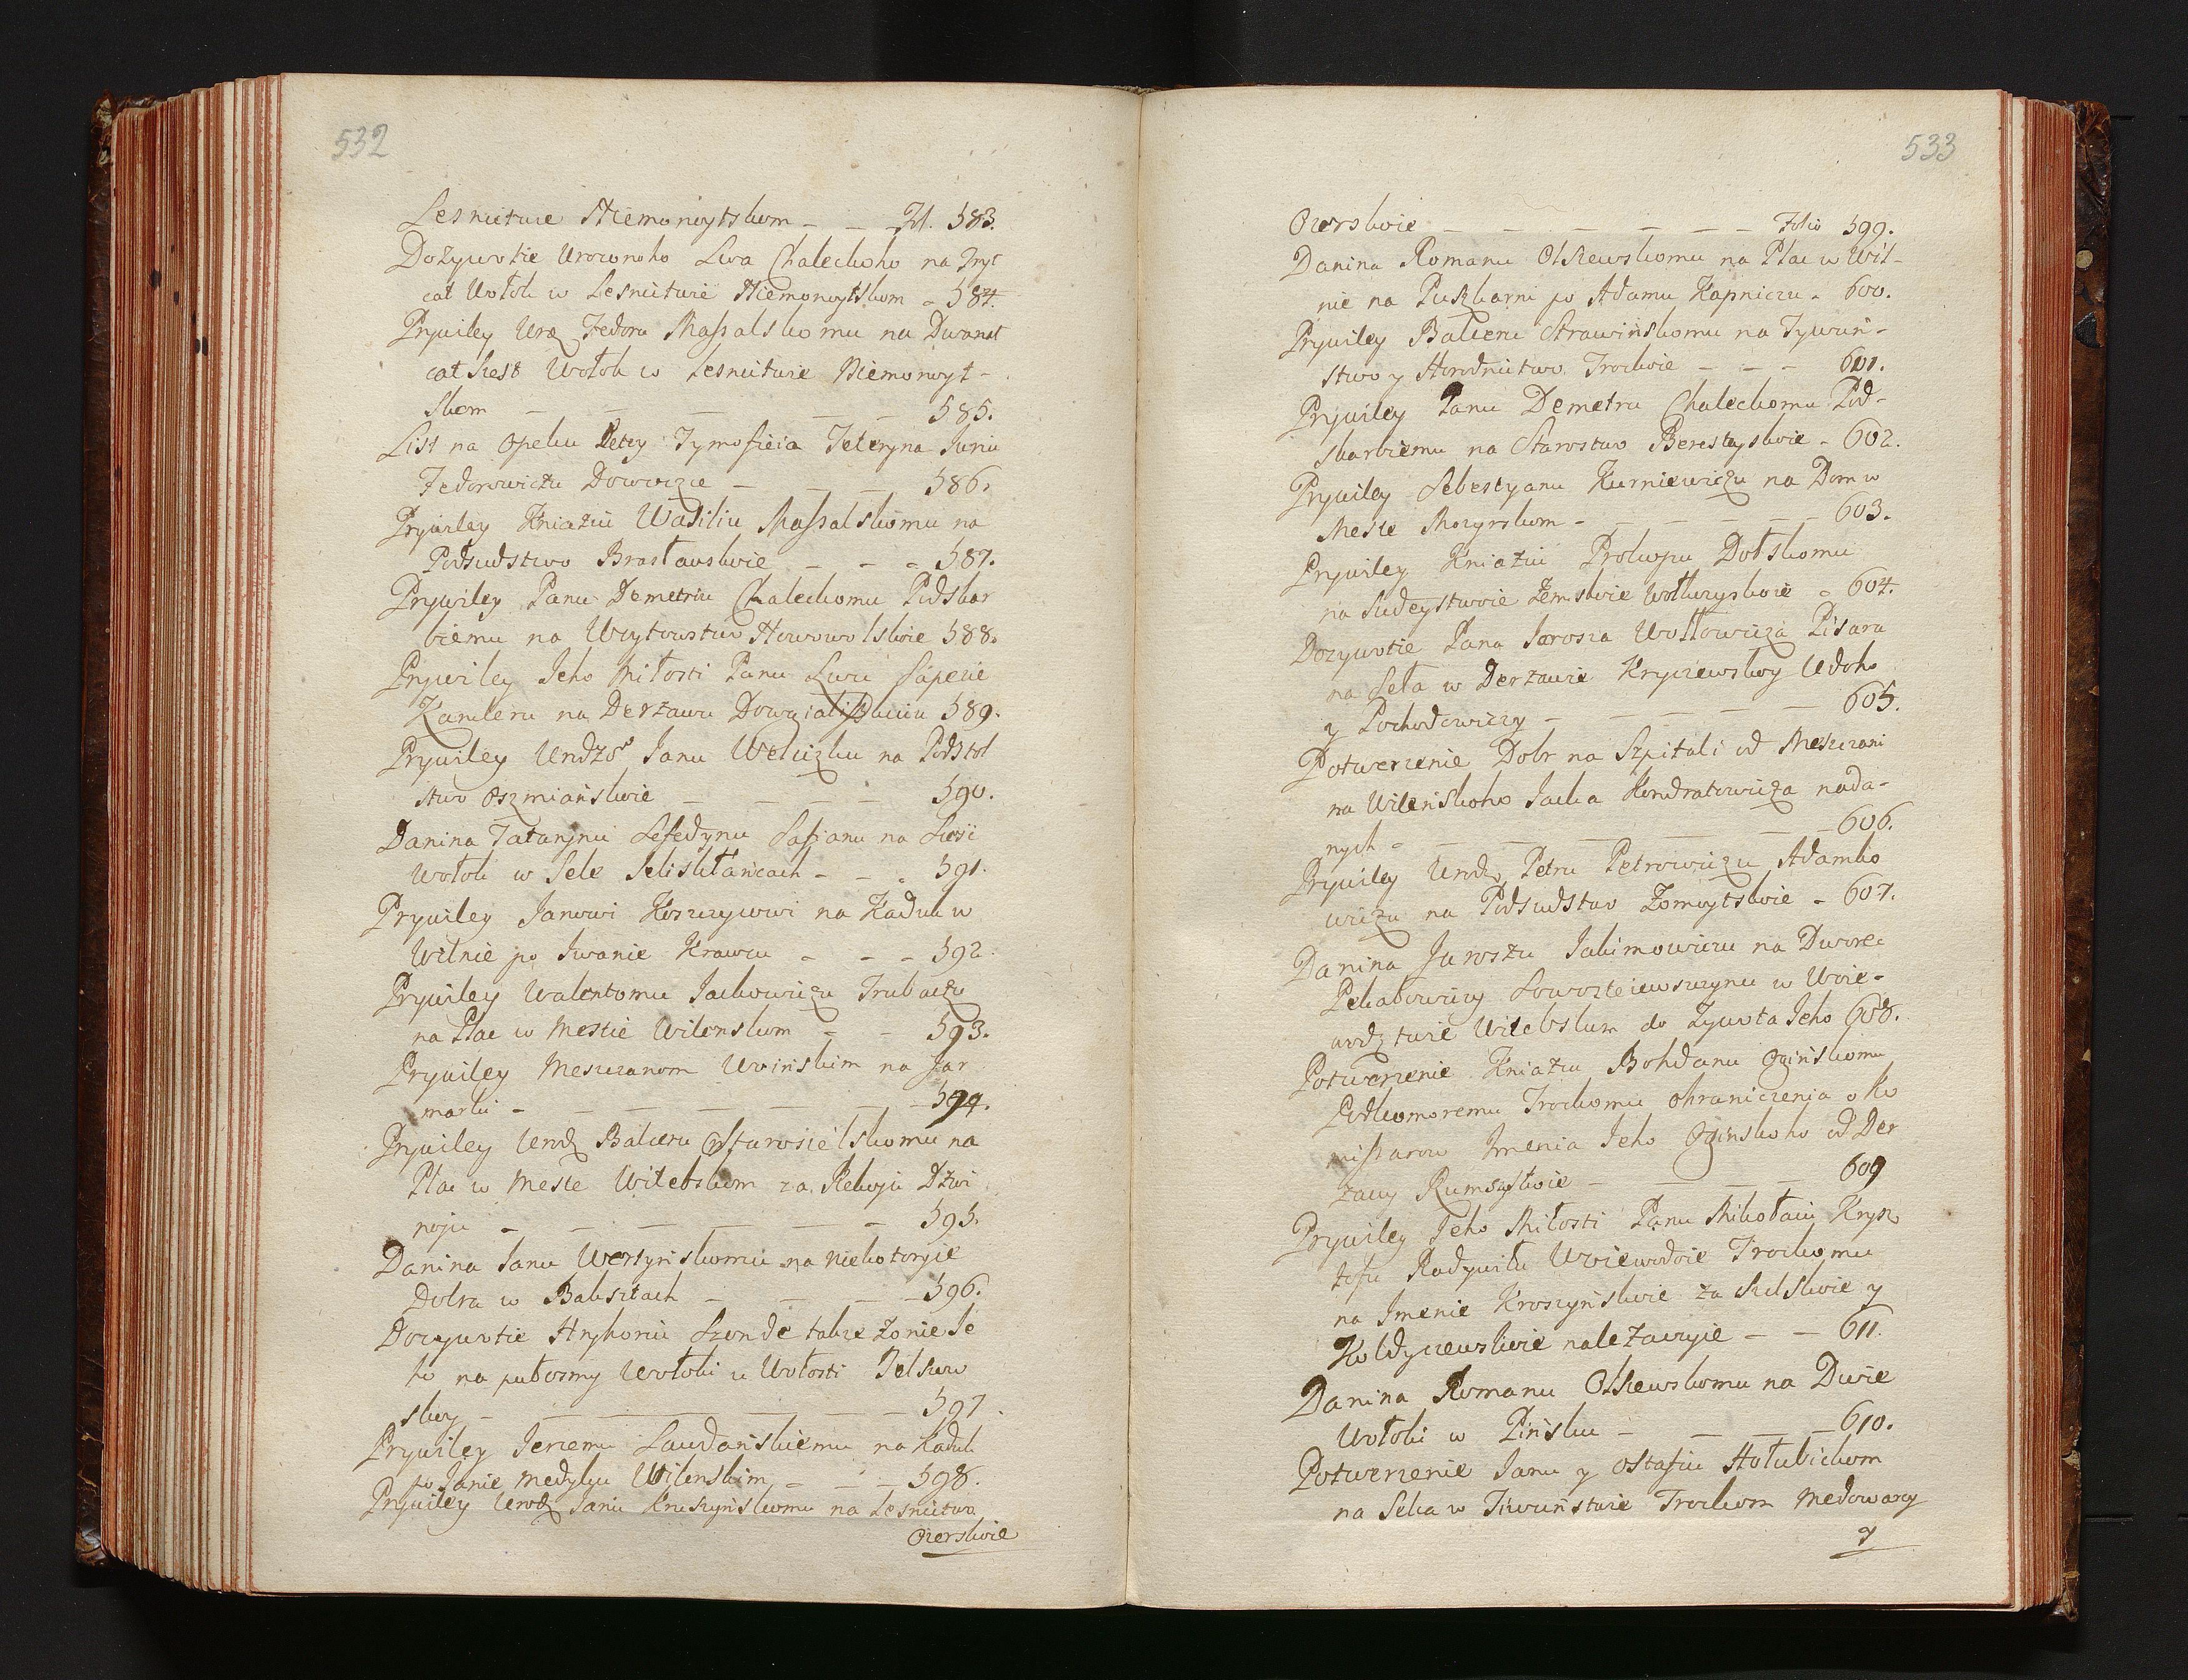 532
Lesnictwe Niemonoytskom - - - Fol. 583.
Dożywotie Urozonoho Lwa Chaleckoho na Tryt
cat Wołok w Lesnictwie Niemonoytskom - 584.
Prywiley Uroz Fedoru Massalskomu na Dwanat
cat szest Wołok w Lesnictwie Niemonoyt-
skom - - - - - 585.
List na Opeku Detey Tymofieia Teteryna Juriu
Fedorowiczu Dowoycze - - - 586.
Prywiley Kniaziu Wasiliu Massalskomu na
Podsudstwo Brasławskoie - - - 587.
Prywiley Panu Demetriu Chaleckomu Podskar
biemu na Woytowstwo Nowowolskoie 588.
Prywiley Jeho Miłosti Panu Lwu Sapezie
Kancleru na Derzawu 589.
Prywiley Urodzo Janu Weliczku na Podstol
stwo Oszmianskoie - - - - 590.
Danina Tatarynu Sefedynu Sassanu na Szesć
Wołok w Sele - - - 591.
Prywiley Janowi Koszczycowi na Kaduk w
Wilnie po Iwanie Krawcu - - - 592.
Prywiley Walentomu Jackowiczu Trubaczu
na Plac w Mestie Wilenskom - - 593.
Prywiley Meszczanom Uvinskim na Jar
marki - - - - - - - 594.
Prywiley Urodz Balceru Starosielskomu na
Plac w Meste Witebskom za Rekoju Dzwi
noju - - - - - - 595.
Danina Janu Wersynskomu na Niekotoryie
Dobra w Baksztach - - - - 596.
Dozywotie Hryhoriu Szende takze Zonie Je
ho na puł osmy Wołoki u Wołosti Jelskow
skoy - - - - - - 597.
Prywiley Jerzemu Laudanskiemu na Kaduk
po Janie Medyku Wilenskim - - - 598.
Prywiley Urodz Janu Kruszynskomu na Lesnictwo
Ozerskoie
533
Ozerskoie - - - - - - - Folio 599.
Danina Romanu Olszewskomu na Plac w Wil-
nie na Puszkarni po Adamu Kapniczu - 600.
Prywiley Balceru Strawinskomu na Tywun-
stwo y Horodnictwo Trockoie - - - 601.
Prywiley Panu Demetru Chaleckomu Pod-
skarbiemu na Starostwo Berestyskoie - 602.
Prywiley Sebestyanu Kurniewiczu na Dom w
Meste Mozyrskom - - - - - - 603.
Prywiley Kniaziu Prokopu Dolskomu
na Sudeystwoie Zemskoie Wołkuyskoie - 604.
Dozywotie Pana Jarosza Wołłowicza Pisara
na Seła w Derzawie Kryczewskoy Udoho
y Pochodowiczy - - - - - 605.
Potwerzenie Dobr na Szpitali od Meszczani
na Wilenskoho Jacka Kondratowicza nada-
nych - - - - - - - 606.
Prywiley Urodz Petru Petrowiczu Adamko
wiczu na Podsudstwo Zomoytskoie - 607.
Danina Jaroszu Jakimowiczu na Dworec
Pekałowiczy Loworteiewszczynu w Woie-
wodztwie Witebskom do Zywota Jeho 608.
Potwerzenie Kniaziu Bohdanu Oginskomu
Podkomoremu Trockomu ohraniczenia o Ko
missarow Imenia Jeho Oginskoho od Der
zawy Rumszyskoie - - - - - 609
Prywiley Jeho Miłosti Panu Mikołaiu Krysz
tofu Radywiłu Woiewodie Trockomu
na Imenie Kroszynskoie za Sudskoie y
Kołdyczewskoie nalezaczyie - - 611.
Danina Romanu Olszewskomu na Dwie
Wołoki w Pinsku - - - - 610.
Potwerzenie Janu y Ostafiu Hołubickom
na Seła w Tiwunstwie Trockom Medowary
y